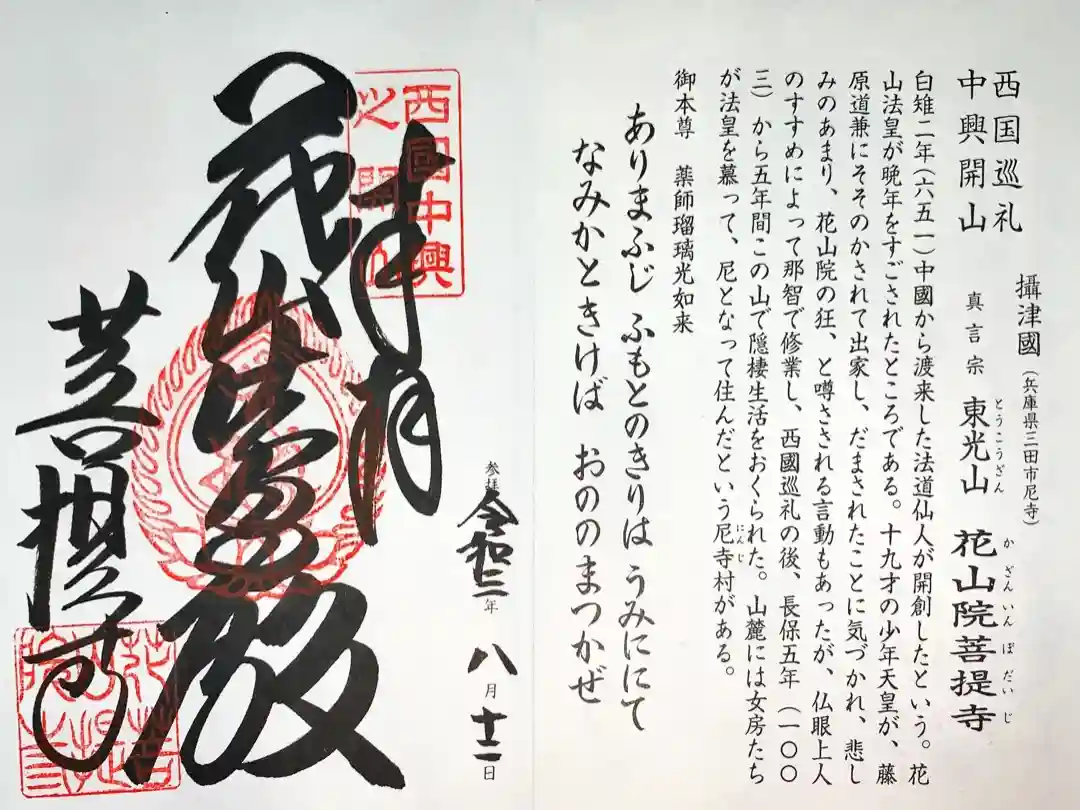 西国巡礼
中興開山
攝津國(兵庫県三田市尼寺)
真言宗 東光山 花山院菩提寺
とうこうざん かざんいんぼだいじ
白雉二年(六五一)中國から渡来した法道仙人が開創したという。花
山法皇が晩年をすごされたところである。十九才の少年天皇が、藤
原道兼にそそのかされて出家し、だまされたことに気づかれ、悲し
みのあまり、花山院の狂、と噂さされる言動もあったが、仏眼上人
のすすめによって那智で修業し、西國巡礼の後、長保五年(一〇〇
三)から五年間この山で隠棲生活をおくられた。山麓には女房たち
が法皇を慕って、尼となって住んだという尼寺村がある。
にんじ
御本尊 薬師瑠璃光如来
ありまふじ ふもとのきりは うみににて
なみかときけば おののまつかぜ
参拝
令和三年 八月十二日
西國中興
之開山
奉拝
花山法皇殿
菩提寺